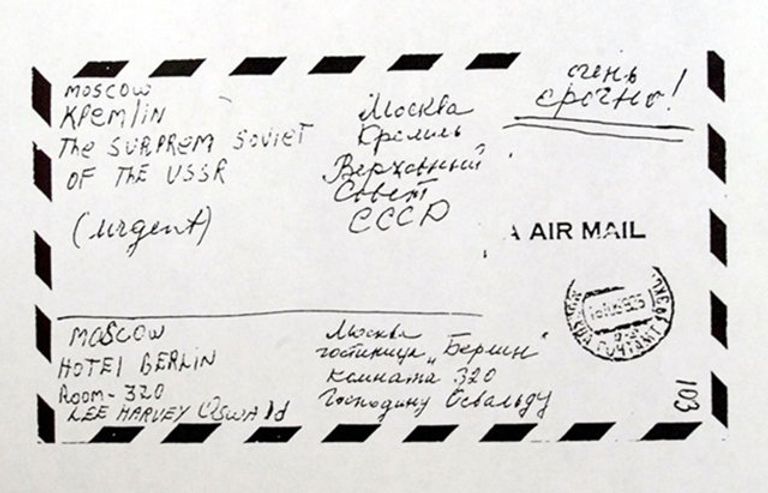 MOSCOW
KremlIN
The SURPREM SOVIET
OF THE USSR
(urgent)
Москва
Кремль
Верховный
Совет
СССР
очень
срочно!
AIR MAIL
MOSCOW
HOTEl BERLIN
Room - 320
LEE HARVEY Oswald
Москва
гостиница „Берлин"
комната 320
Господину Освальду
ПОЧТАМТ
103